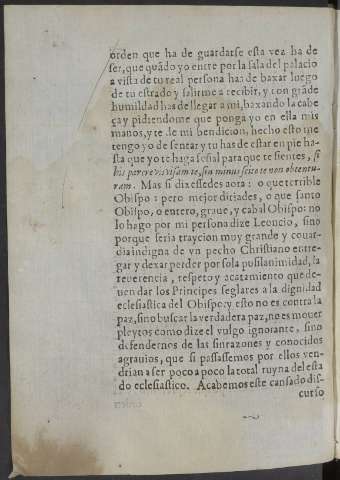 orden que ha de guardarse esta vez ha de
ser, que quãdo yo entre por la sala del palacio
a vista de tu real persona has de baxar luego
de tu estrado y salirme a recibir, y con grãde
humildad has de llegar a mi, baxando la cabe
ça y pidiendome que ponga yo en ella mis
manos, y te de mi bendicion, hecho esto me
tengo yo de sentar y tu has de estar en pie ha-
sta que yo te haga señal para que te sientes, si
his parcere vis visam te, sin minus
ram. Mas si dixessedes aora: o que terrible
Obispo: pero mejor diriades, o que santo
Obispo, o entero, graue, y cabal Obispo: no
lo hago por mi persona dize Leoncio, sino
porque seria traycion muy grande y couar-
dia indigna de vn pecho Christiano entre-
gar y dexar perder por sola pusilanimidad, la
reuerencia, respeto y acatamiento que de-
uen dar los Principes seglares a la dignidad
eclesiastica del Obispo, y esto no es contra la
paz, sino buscar la verdadera paz, no es mouer
pleytos como dize el vulgo ignorante, sino
defendernos de las sinrazones y conocidos
agrauios, que si passassemos por ellos ven-
drian a ser poco a poco la total ruyna del esta
do eclesiastico. Acabemos este cansado dis-
curso